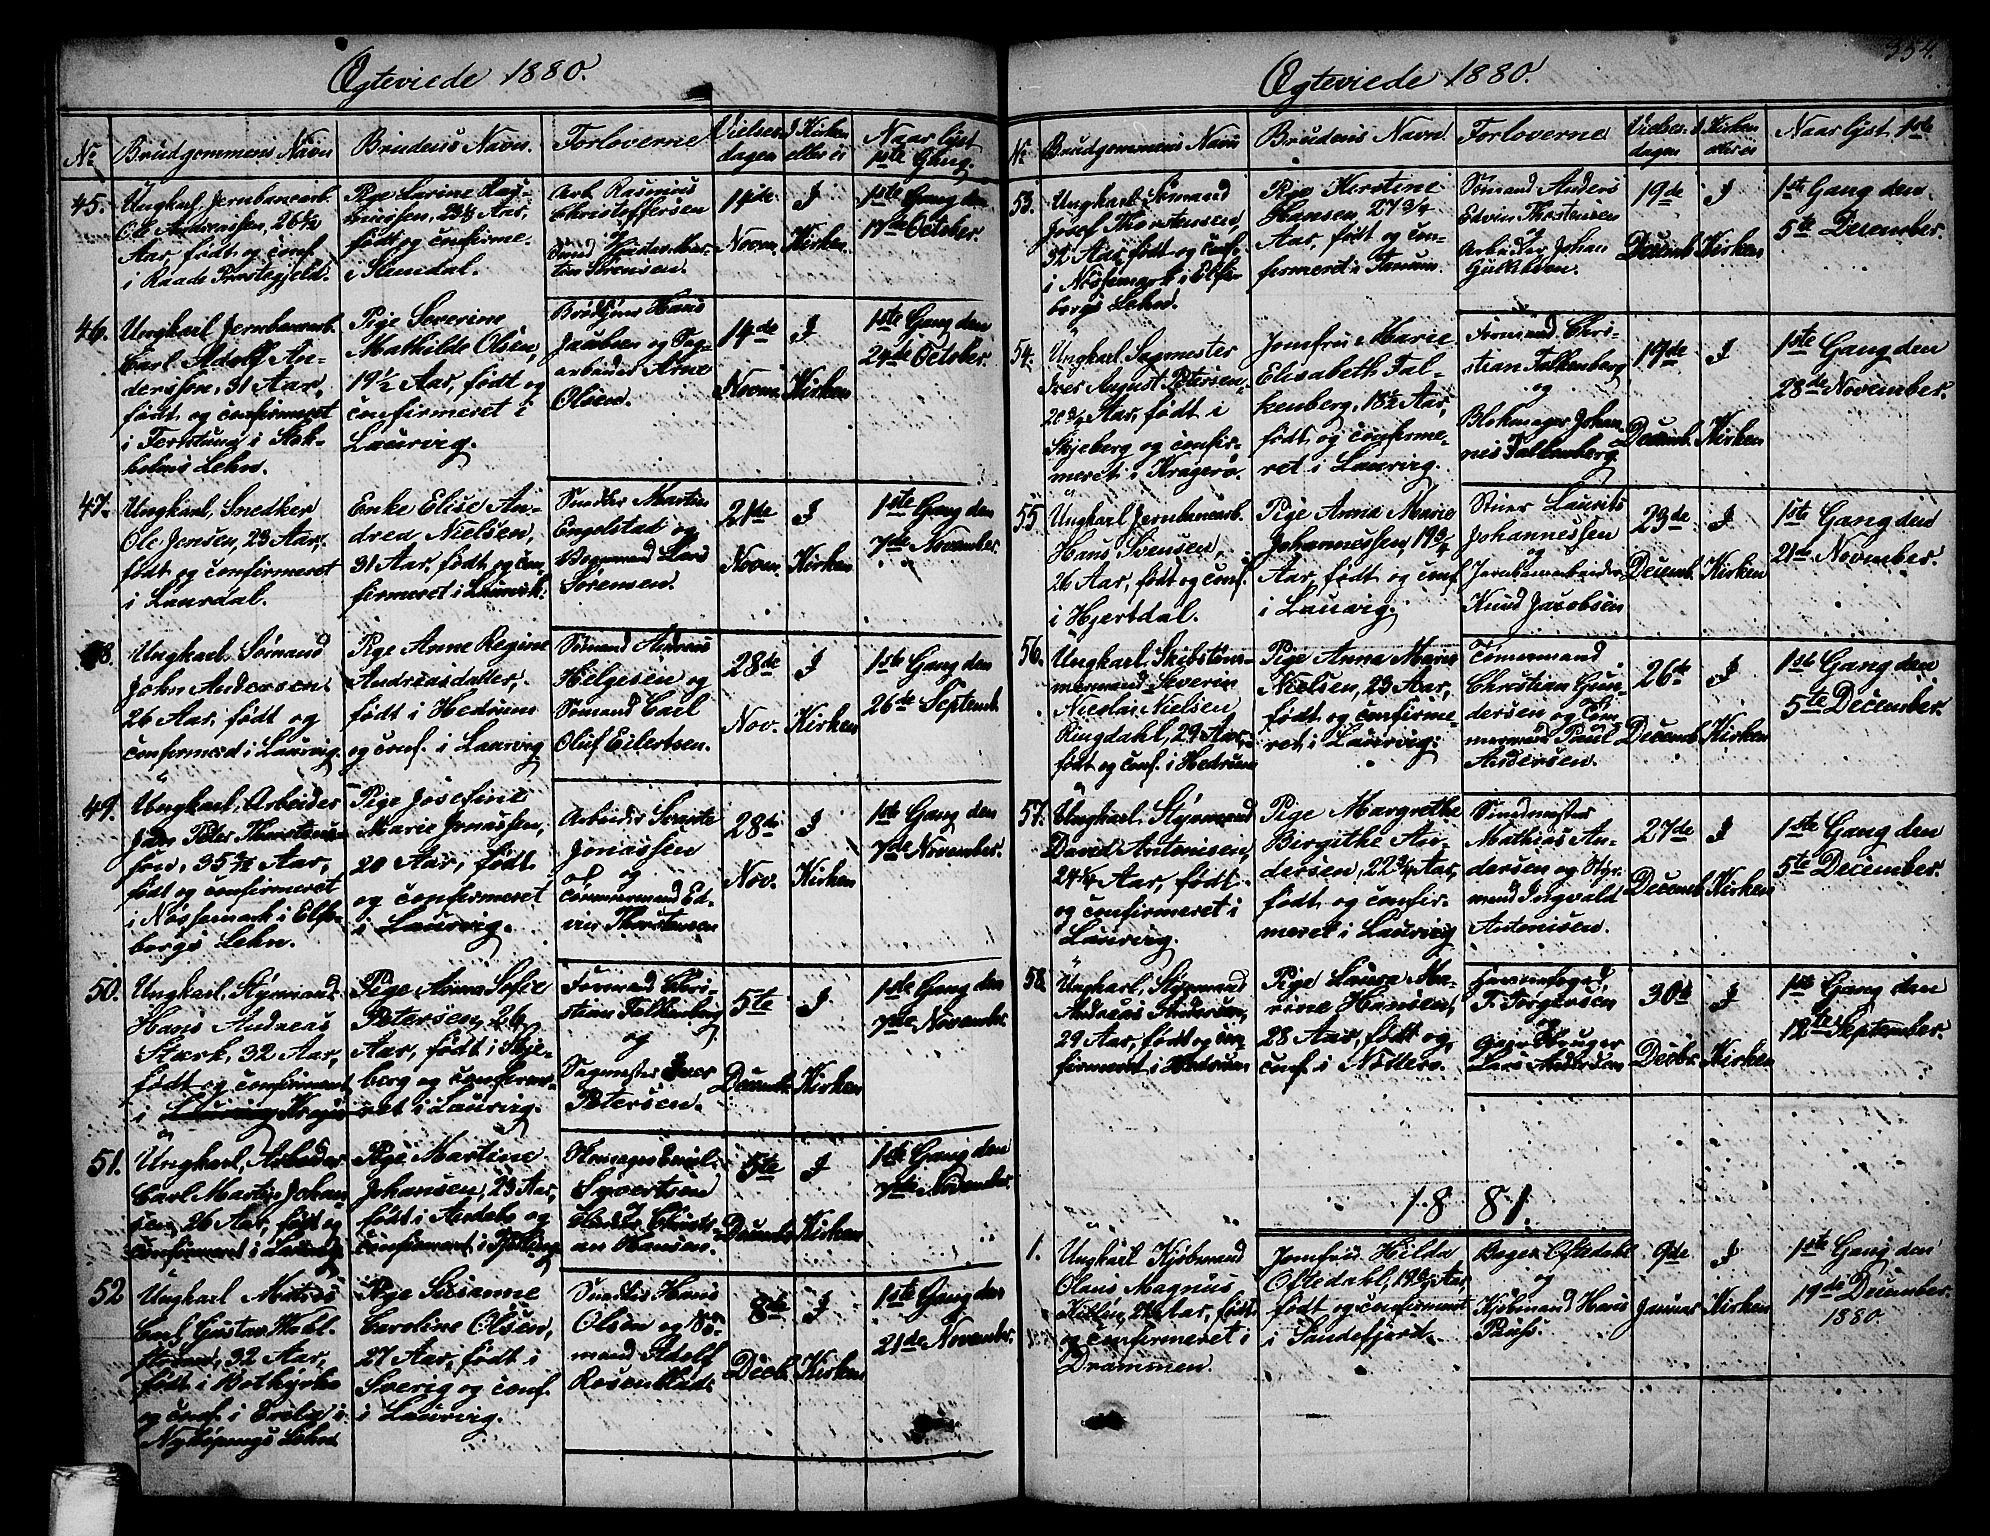 Ægteviede 1880.
No
Brudgommens Navn
Brudens Navn.
Forloverne
Vielses
dagen
I Kirken
eller ei
Naar lyst
1ste Gang.
45.
Ungkarl Jernbanearb.
Ole Andreassen, 26½
Aar, født og conf.
i Raade Præstegjeld.
Pige Larine
født og confirme-
i Slemdal.
Arb. Rasmus
Christoffersen
og
Sørensen.
14de
Novm.
I
Kirken.
1ste Gang den
17de October.
46.
Ungkarl Jernbanearb.
Carl Adolf An-
derssen, 31 Aar,
født og confirmeret
i Stok-
holms Lehn.
Pige Severine
Mathilde Olsen,
19½ Aar, født og
confirmeret i
Laurvig.
Hans
Jacobsen og Sag-
arbeider Arne
Olsen.
14de
Novm.
I
Kirken
1ste Gang den
24de October.
47.
Ungkarl, Snedker
Ole Jensen, 23 Aar,
født og confirmeret
i Laurdal.
Enke Elise An-
drea Nielsen,
31 Aar, født og con-
firmeret i Laurvik.
Snedker Martin
Engelstad og
Lars
Sørensen.
21de
Novm.
I
Kirken
1ste Gang den
7de November.
48.
Ungkarl. Sømand
John Andersen
26 Aar, født og
confirmered i Laurvig.
Pige Anne Regine
Andreasdatter,
født i Hedrum
og conf. i Laurvig
Sømand Andreas
Helgesen og
Sømand Carl
Oluf Eilertsen.
28de
Nov.
I
Kirken
1ste Gang den
26de Septemb.
49.
Ungkarl, Arbeider
Jan Peter Thorsten-
sen, 35 Aar,
født og confirmeret
i Nössemark i Elfs-
borgs Lehn.
Pige Josefine
Marie Jonassen,
20 Aar, født
og confirmeret
i Laurvig.
Arbeider
Jonassen
og
Tømmermand Ed-
vin Thorstensen
28de
Nov.
I
Kirken
1ste Gang den
7de November.
50.
Ungkarl. Styrmand
Hans Andreas
Stærk, 32 Aar,
født og confirmeret
i Laurvig
Pige Anna Sofie
Petersen, 26
Aar, født i Skje-
berg og confirme-
ret i Laurvig.
Formand Chri-
stian Falkenberg
og
Sagmester Iver
Petersen.
5te
Decemb.
I
Kirken
1ste Gang den
7de November.
51.
Ungkarl, Arbeider
Carl Martin Johan-
sen, 26 Aar, født og
confirmeret i Laurvig
Pige Martine
Johansen, 23 Aar,
født i Andebo og
confirmeret i
Emil
Syvertsen
og
Christi-
an Hansen.
5te
Decemb
I
Kirken
1ste Gang den
7de November.
52
Ungkarl
Carl Gustav
32 Aar,
født i Botkyrka
og conf. i
Nyköpings Lehn
Pige Susanne
Caroline Olsen,
27 Aar, født i
Sverig og conf.
i Laurvig.
Snedker Hans
Olsen og
mand Adolf
Rosenblad.
8de
Decb.
I
Kirken
1ste Gang den
21de November.
354.
Ægteviede 1880.
No
Brudgommens Navn
Brudens Navn
Forloverne
Vielses
dagen
I Kirken
eller ei
Naar lyst 1ste
53.
Ungkarl Sømand
Josef Thorstensen,
31 Aar, født og conf.
i Nössemark i Elfs-
borgs Lehn.
Pige Kirstine
Hansen 27¾
Aar, født og con-
firmeret i Tanum.
Sømand Anders
Edvin Thorstensen
og
Arbeider Johan
19de
Decemb.
I
Kirken
1ste Gang den
5te December.
54.
Ungkarl. Sagmester
Iver August Petersen,
20¾ Aar, født i
Skjeberg og confir-
meret i Kragerø.
Jomfru Marie
Elisabeth Fal-
kenberg, 18½ Aar,
født og confirme-
ret i Laurvig.
Formand Chri-
stian Falkenberg
og
Blokmager Johan-
nes Falkenberg
19de
Decemb.
I
Kirken
1ste Gang den
28de November.
55
Ungkarl Jernbanearb.
Hans Svensen,
26 Aar, født og conf.
i Hjertdal.
Pige Anna Marie
Johannessen, 19¾
Aar, født og conf
i Laurvig.
Laurits
Johannessen
og
Jernbanearbeider
Knud Jacobsen
23de
Decemb.
I
Kirken
1ste Gang den
21de November.
56.
Ungkarl. Skibstøm-
mermand Severin
Nicolai Nielsen
Ringdahl, 29 Aar,
født og conf. i Hedrum
Pige Anna Marie
Nielsen, 23 Aar,
født og confirme-
ret i Laurvig.
Tømmermand
Christian Gun-
dersen og Tøm-
mermand Paul
Andersen.
26de
Decemb
I
Kirken
1ste Gang den
5te December.
57.
Ungkarl. Styrmand
David Antonisen,
24¾ Aar, født
og confirmeret i
Laurvig.
Pige Margrethe
Birgithe An-
dersen, 22¾ Aar,
født og confir-
meret i Laurvig
Mathias An-
dersen og Styr-
mand Ingvald
Antonisen.
27de
Decemb
I
Kirken
1ste Gang den
5te December.
58.
Ungkarl. Styrmand
Andreas Andersen,
29 Aar, født og con-
firmeret i Hedrum
Pige Laura Ma-
rine Hansen,
28 Aar, født og
conf. i Nøtterø.
Havnefoged
F. Jørgensen
og
Lars Andersen
30te
Decbr.
I
Kirken
1ste Gang den
12te September.
1881.
1.
Ungkarl Kjøbmand
Olaus Magnus
Aar, født
og confirmeret i
Drammen.
Jomfru Hilda
Oftedahl, 19¾ Aar
født og confirmeret
i Sandefjord.
Bager Oftedahl
og
Kjøbmand Hans
Paus.
9de
Januar
I
Kirken
1ste Gang den
19de December.
1880.